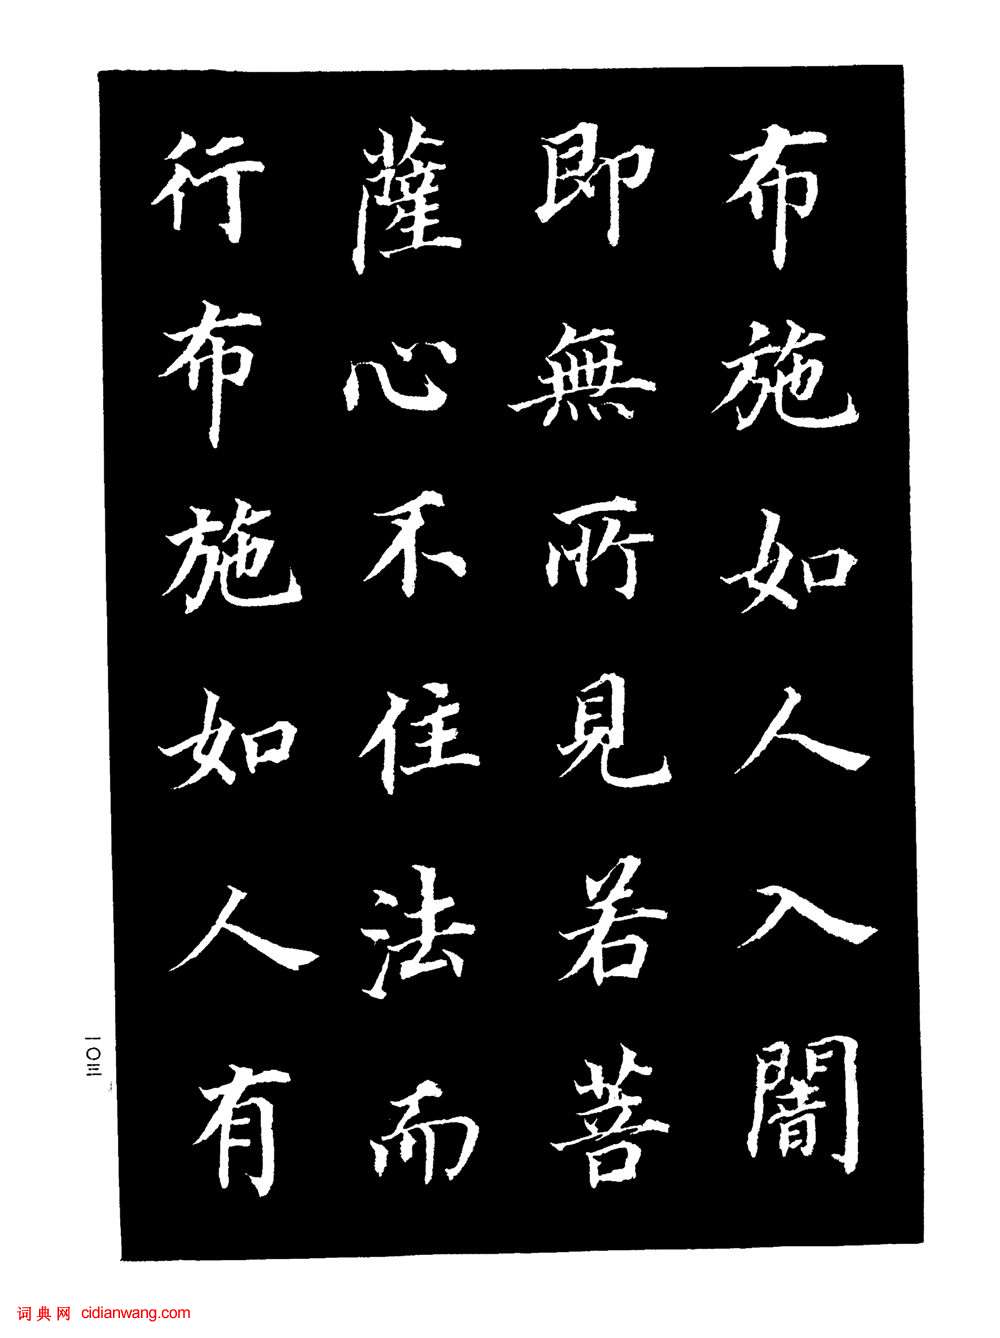 布施如人入闇
即無所見若菩
薩心不住法而
行布施如人有
一〇三
词典网 cidianwang.com